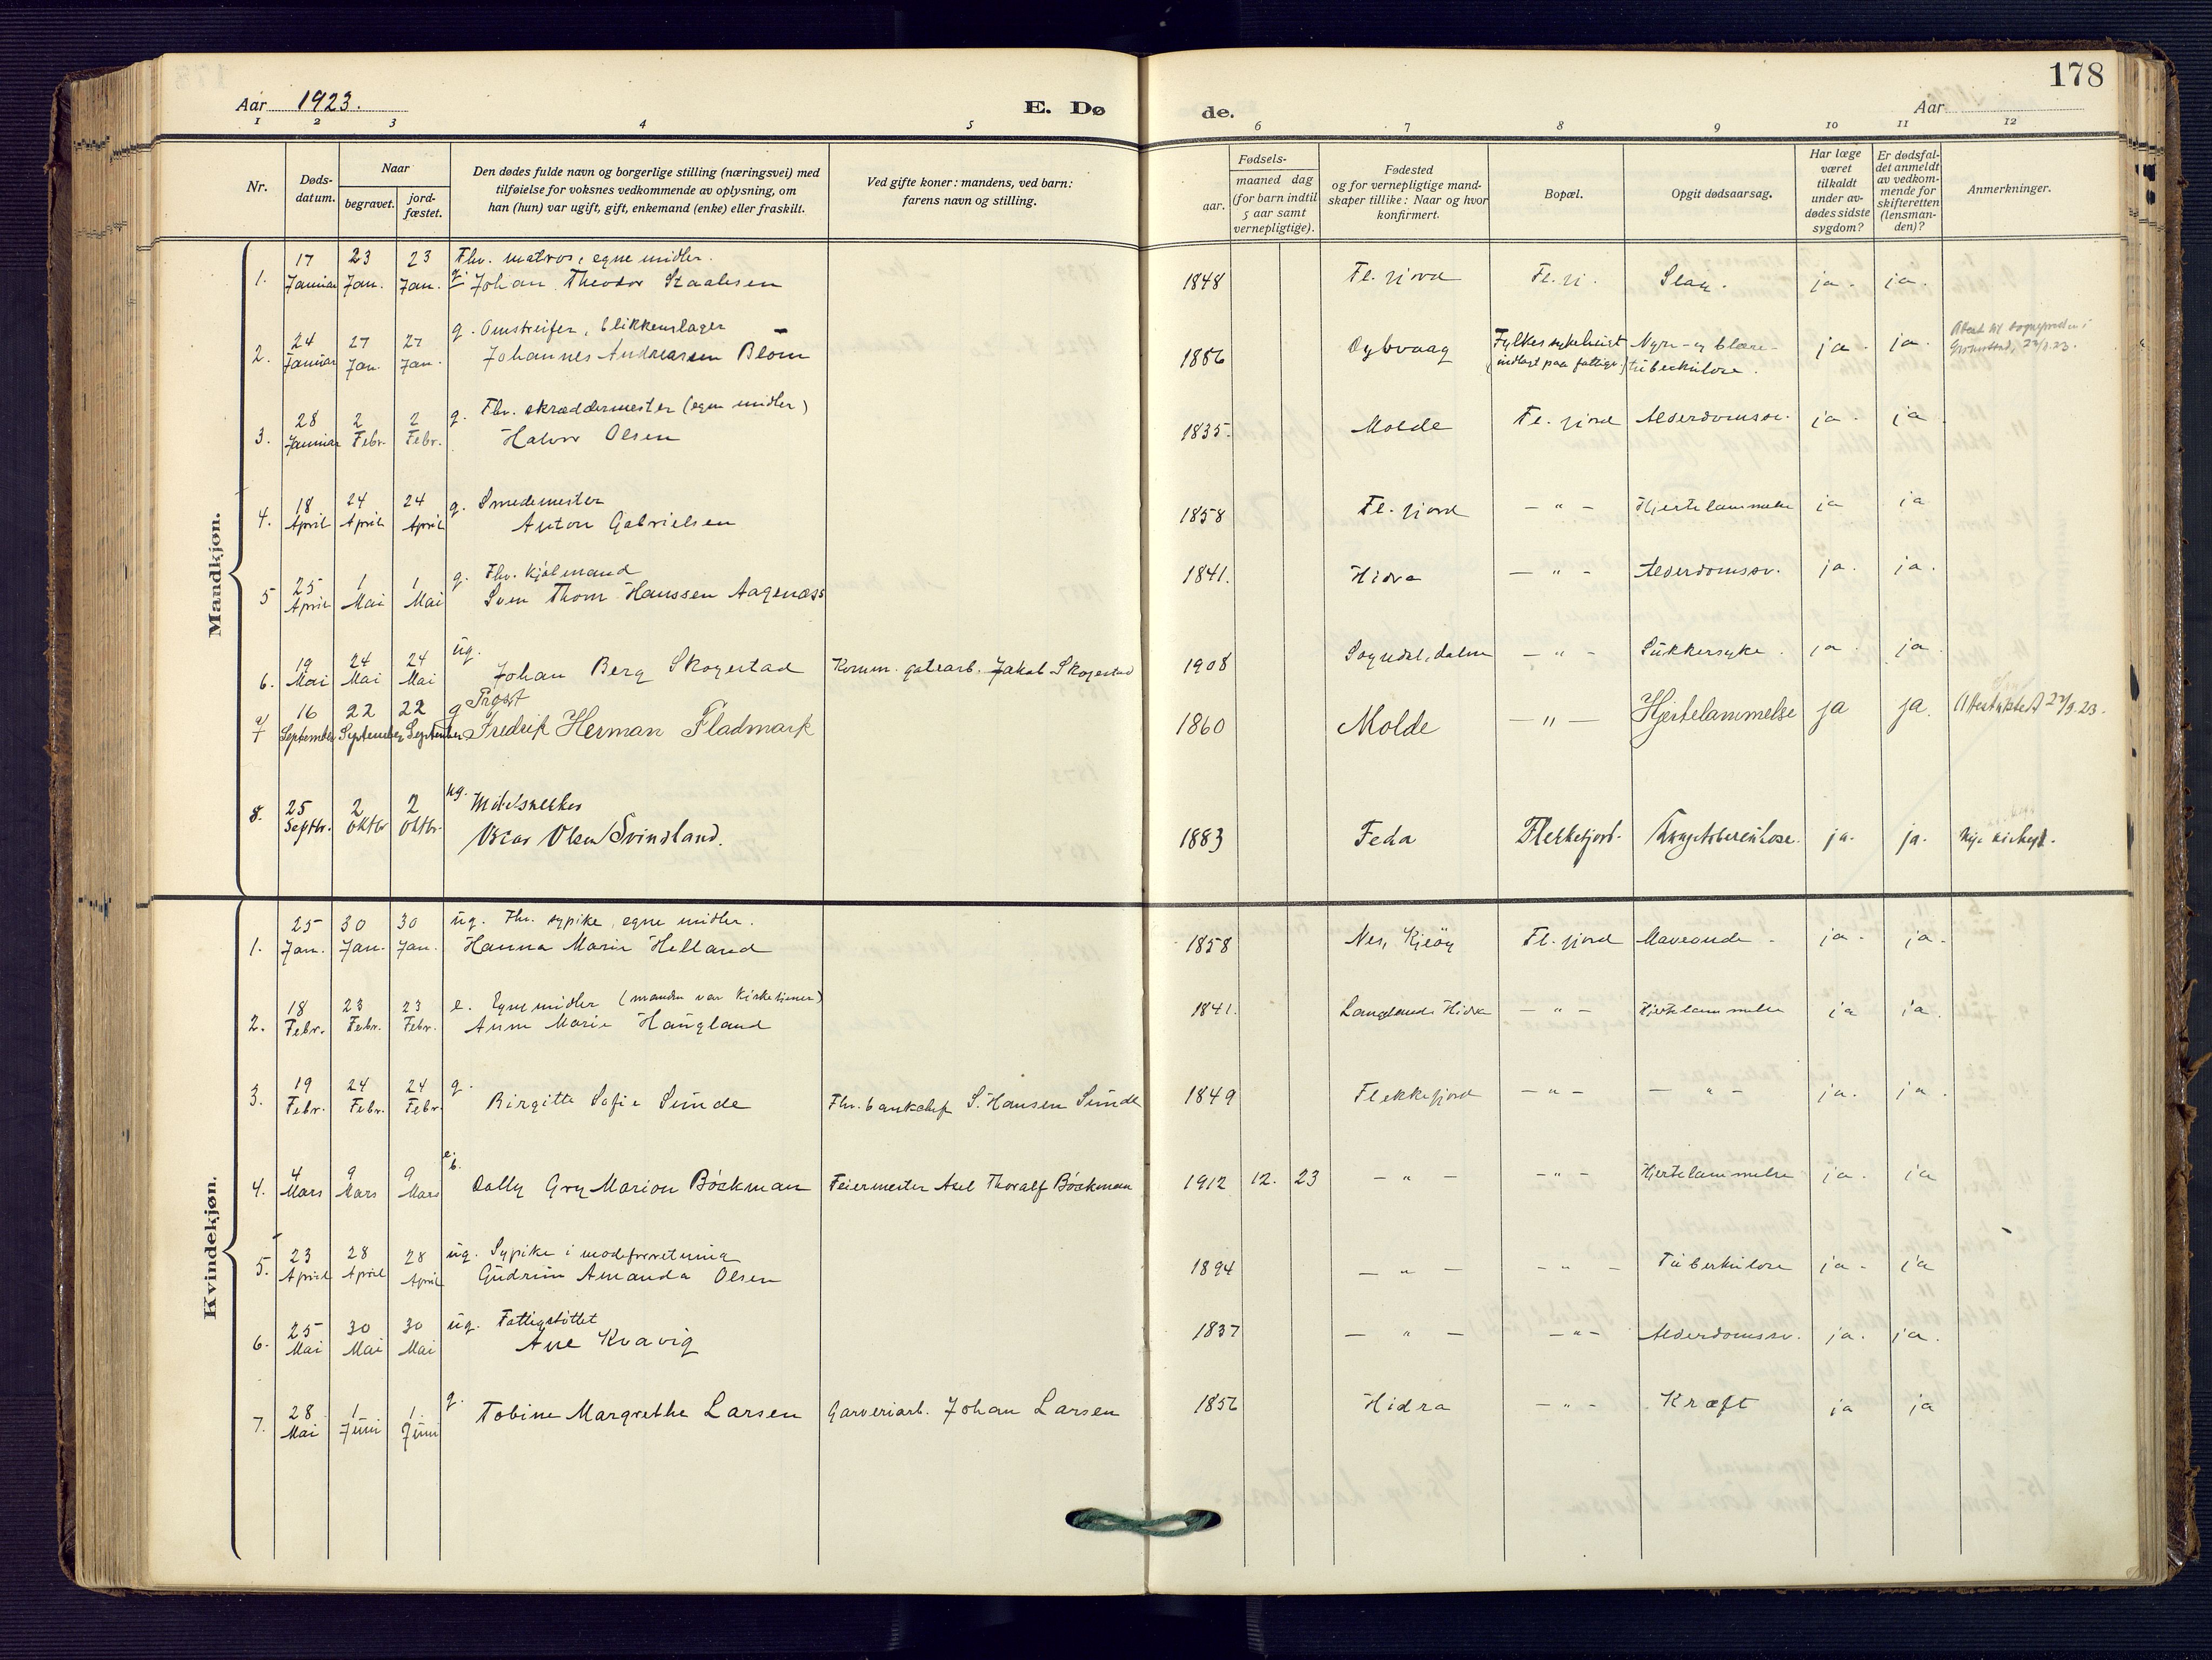 178
Aar 1923.
E. Dø
de.
Aar
1 2 3 4 5 6 7 8 9 10 11 12
Nr.
Døds-
datum.
Naar
begravet.
jord-
fæstet.
Den dødes fulde navn og borgerlige stilling (næringsvei) med
tilføielse for voksnes vedkommende av oplysning, om
han (hun) var ugift, gift, enkemand (enke) eller fraskilt.
Ved gifte koner: mandens, ved barn:
farens navn og stilling.
Fødsels-
aar.
maaned dag
(for barn indtil
5 aar samt
vernepligtige).
Fødested
og for vernepligtige mand-
skaper tillike: Naar og hvor
konfirmert.
Bopæl.
Opgit dødsaarsag.
Har læge
været
tilkaldt
under av-
dødes sidste
sygdom?
Er dødsfal-
det anmeldt
av vedkom-
mende for
skifteretten
(lensman-
den)?
Anmerkninger.
Mandkjøn.
17 23 23 Fhv. matros, egne midler.
1. Januar Jan. Jan. Johan Theodor Staalesen 1848 Fl. fjord Fl. fj. Slag. ja. ja.
24 27 27 g. Omstreifer, blikkenslager
2. Januar Jan. Jan. Johannes Andreassen Blom 1886 Dybvaag Fylkessykehuset Nyre- og blære- ja. ja.
(indlagt paa fattigv.) tuberkulose.
28 2 2 g. Fhv. skræddermester (egne midler)
3. Januar Febr. Febr. Halvor Olsen 1835. Molde Fl. fjord Alderdomssv. ja. ja
18 24 24 g. Smedemester
4. April April April Anton Gabrielsen 1858 Fl. fjord - " - Hjertelammelse ja ja
25 1 1 g. Fhv. kjølmand
5 April Mai Mai Sven Thom Hanssen Aagenæss 1841. Hidra - " - Alderdomssv. ja. ja.
19 24 24 ug.
6. Mai Mai Mai Johan Berg Skogestad Komm. gatearb. Jakob Skogestad 1908 Sogndal, Dalen - " - Sukkersyke. ja. ja.
16 22 22 g Prost
7 September September September Fredrik Herman Fladmark 1860 Molde - " - Hjertelammelse ja ja. Attest utstedt 27/9.23.
25 2 2 ug. Møbelsnekker
8. Septbr. Oktbr Oktbr. Oscar Olsen Svindland. 1883 Feda Flekkefjord. ja. ja. Nye kirkeg.
Kvindekjøn.
25 30 30 ug. Fhv. sypike, egne midler.
1. Jan. Jan. Jan. Hanna Marie Helland 1858 Nes, Fl. fjord Maveonde. ja. ja.
18 23 23 e. Egne midler (manden var kirketjener)
2. Febr. Febr. Febr. Anne Marie Haugland 1841. Langeland, Hidra - " - Hjertelammelse ja ja.
19 24 24 g.
3. Febr. Febr. Febr. Birgitte Sofie Sunde Fhv. bankchef S. Hansen Sunde 1849 Flekkefjord - " - - " - ja. ja.
4 9 9 e. b.
4. Mars Mars Mars Dolly Gry Marion Böckman Feiermester Axel Thoralf Böckman 1912 12. 23 - " - - " - Hjertelammelse ja. ja
23 28 28 ug. Sypike i modeforretning
5. April April April Gudrun Amanda Olsen 1894 - " - - " - Tuberkulose ja. ja
25 30 30 ug. Fattigstøttet
6. Mai Mai Mai Ane Kvavig 1837 - " - - " - Alderdomssv. ja. ja.
28 1 1 g.
7. Mai Juni Juni Tobine Margrethe Larsen Garveriarb. Johan Larsen 1856 Hidra - " - Kræft ja ja